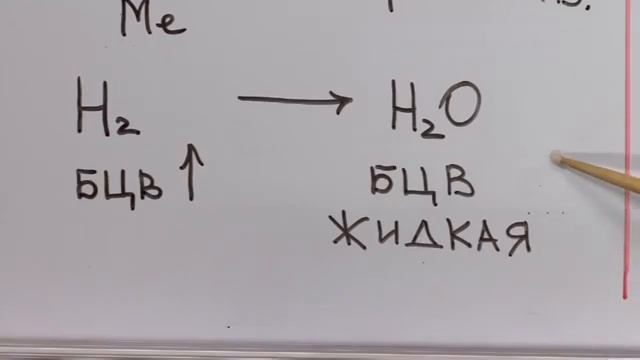 Me
H₂ → H₂O
БЦВ ↑ БЦВ
ЖИДКАЯ